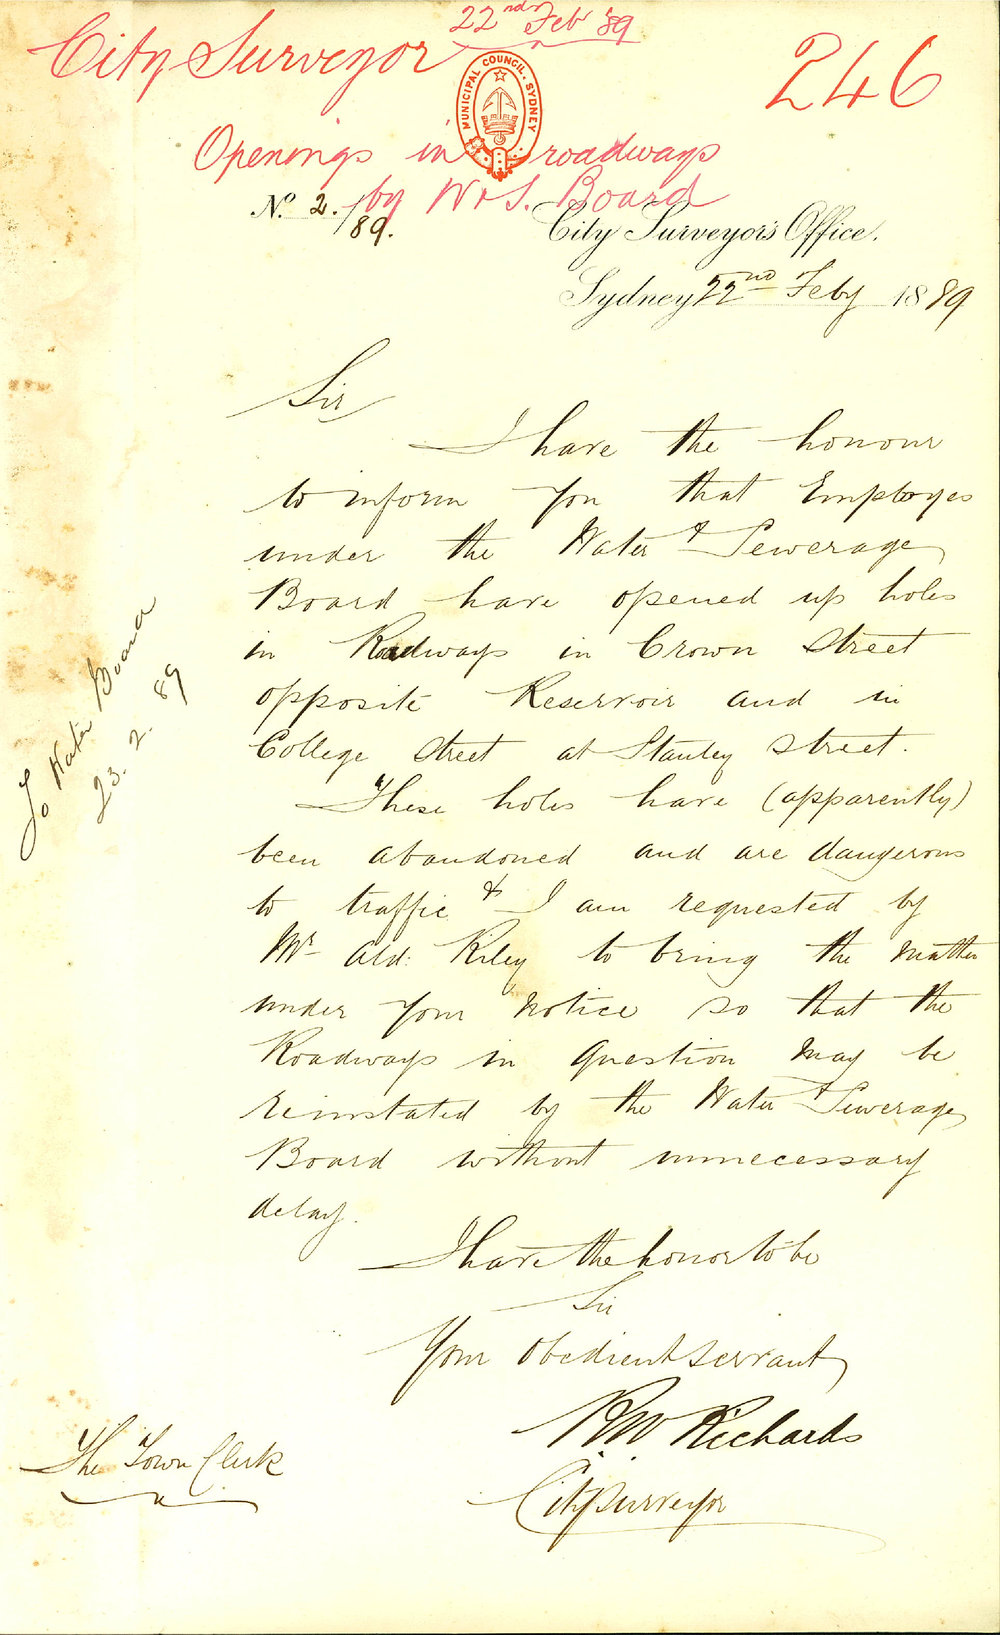 22nd Feb '89
City Surveyor
246
MUNICIPAL COUNCIL. SYDNEY
Openings in roadways
by W & S. Board
No. 2./89.
City Surveyor's Office.
Sydney 22nd Feby 1889
Sir
I have the honour
to inform you that Employes
under the Water & Sewerage
Board have opened up holes
in Roadways in Crown Street
opposite Reservoir and in
College Street at Stanley Street.
These holes have (apparently)
been abandoned and are dangerous
to traffic & I am requested by
Mr Ald: Riley to bring the matter
under your notice so that the
Roadways in question may be
reinstated by the Water & Sewerage
Board without unnecessary
delay.
I have the honor to be
Sir
Your obedient servant
RW Richards
City Surveyor
The Town Clerk
To Water Board
23. 2. 89